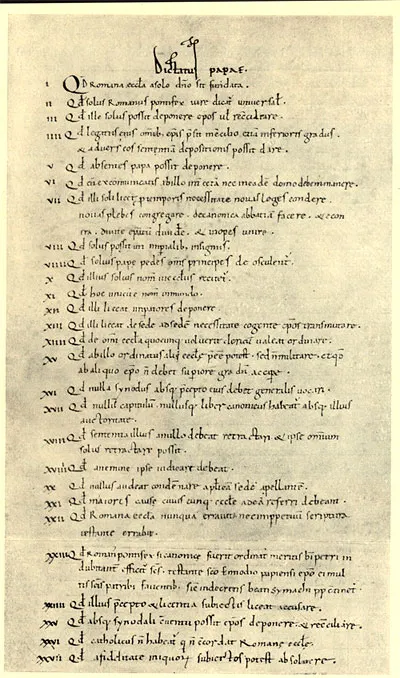 Dictatus papae.
I QD Romana eccl̄a a solo dn̄o sit fundata.
II Qđ solus Romanus pontifex iure dicat̄ universał.
III Qđ ille solus possit deponere ep̄os uł reconciliare.
IIII Qđ legatus eius omīb; ep̄is p̄sit in cōcilio etiā inferioris gradus.
& adversus eos sententiā depositionis possit dare.
V Qđ absentes papa possit deponere.
VI Qđ cū excommunicatis ab illo int̄ cet̄a nec in eadē domo debemus manere.
VII Qđ illi soli licet p̄ temporis necessitate novas leges condere
novas plebes congregare. de canonica abbatiam facere. & econ
tra. divitē ep̄atū divid̄e. & inopes unire.
VIII Qđ solus possit uti imp̄ialib; insigniis.
VIIII Qđ solius pape pedes om̄s principes deosculent̄.
X Qđ illius solius nom̄ in eccl̄iis recitet̄.
XI Qđ hoc unicū ē nom̄ in mundo.
XII Qđ illi liceat imp̄atores deponere.
XIII Qđ illi liceat de sede ad sedē necessitate cogente ep̄os transmutare.
XIIII Qđ de om̄i eccl̄a quocūq; voluerit clericū valeat ordinare.
XV Qđ ab illo ordinatus alii eccl̄e p̄eē potest. sed n̄ militare. et qđ
ab aliquo ep̄o n̄ debet sup̄iorē gradū accip̄e.
XVI Qđ nulla synodus absq; p̄cepto eius debet generalis vocari.
XVII Qđ nullū capitulū nullusq; liber canonicus habeat̄ absq; illius
auctoritate.
XVIII Qđ sententia illius a nullo debeat retractari & ipse omnium
solus retractare possit.
XVIIII Qđ a nemine ipse iudicari debeat.
XX Qđ nullus audeat condēnare ap̄licā sedē apellantē.
XXI Qđ maiores cause cuiuscunq; eccl̄e ad eā referri debeant.
XXII Qđ Romana eccl̄a nunquā erravit nec inppetuū scriptura
testante errabit.
XXIII Qđ Romanꝰ pontifex si canonice fuerit ordinatꝰ meritis b̄i petri in
dubitanť efficit̄ scs̄. testante scō Ennodio papiensi ep̄o ei mul
tis scīs patribꝰ faventibꝰ. sic̄ in decretis beati symachi pp̄ ctinet̄.
XXIIII Qđ illius p̄cepto & licentia subiectis liceat accusare.
XXV Qđ absq; synodali cventu possit ep̄os deponere & recōciliare.
XXVI Qđ catholicus n̄ habeat̄ q̄ n̄ cōcordat Romane eccl̄e.
XXVII Qđ a fidelitate iniquorū subiectos potest absolvere.